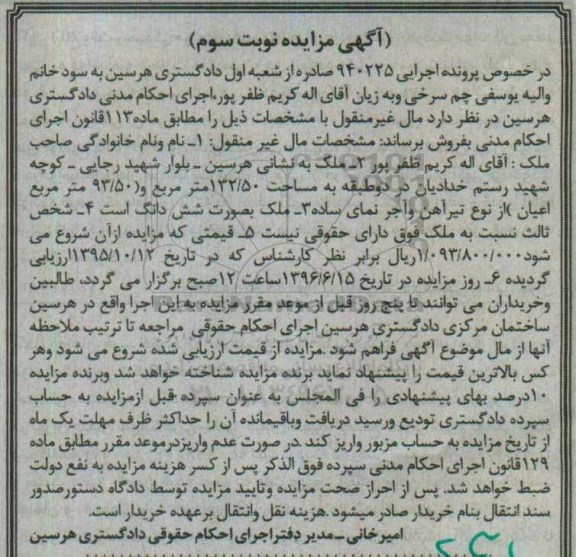 (آگهی مزایده نوبت سوم)
در خصوص پرونده اجرایی ۹۴۰۲۲۵ صادره از شعبه اول دادگستری هرسین به سود خانم
والیه یوسفی چم سرخی وبه زیان آقای اله کریم ظفر پور،اجرای احکام مدنی دادگستری
هرسین در نظر دارد مال غیرمنقول با مشخصات ذیل را مطابق ماده۱۱۳قانون اجرای
احکام مدنی بفروش برساند: مشخصات مال غیر منقول: ۱ـ نام ونام خانوادگی صاحب
ملک : آقای اله کریم ظفر پور ۲ـ ملک به نشانی هرسین ـ بلوار شهید رجایی ـ کوچه
شهید رستم خدادیان در دوطبقه به مساحت ۱۳۲/۵۰متر مربع و( ۹۳/۵۰ متر مربع
اعیان )از نوع تیرآهن وآجر نمای ساده۳ـ ملک بصورت شش دانگ است ۴ـ شخص
ثالث نسبت به ملک فوق دارای حقوقی نیست ۵ـ قیمتی که مزایده ازآن شروع می
شود۱/۰۹۳/۸۰۰/۰۰۰ریال برابر نظر کارشناس که در تاریخ ۱۳۹۵/۱۰/۱۲ارزیابی
گردیده ۶ـ روز مزایده در تاریخ ۱۳۹۶/۶/۱۵ساعت ۱۲صبح برگزار می گردد، طالبین
وخریداران می توانند تا پنج روز قبل از موعد مقرر مزایده به این اجرا واقع در هرسین
ساختمان مرکزی دادگستری هرسین اجرای احکام حقوقی مراجعه تا ترتیب ملاحظه
آنها از مال موضوع آگهی فراهم شود .مزایده از قیمت ارزیابی شده شروع می شود وهر
کس بالاترین قیمت را پیشنهاد نماید برنده مزایده شناخته خواهد شد وبرنده مزایده
۱۰درصد بهای پیشنهادی را فی المجلس به عنوان سپرده قبل ازمزایده به حساب
سپرده دادگستری تودیع ورسید دریافت وباقیمانده آن را حداکثر ظرف مهلت یک ماه
از تاریخ مزایده به حساب مزبور واریز کند .در صورت عدم واریزدرموعد مقرر مطابق ماده
۱۲۹قانون اجرای احکام مدنی سپرده فوق الذکر پس از کسر هزینه مزایده به نفع دولت
ضبط خواهد شد. پس از احراز صحت مزایده وتایید مزایده توسط دادگاه دستورصدور
سند انتقال بنام خریدار صادر میشود .هزینه نقل وانتقال برعهده خریدار است.
امیرخانی ـ مدیر دفتراجرای احکام حقوقی دادگستری هرسین